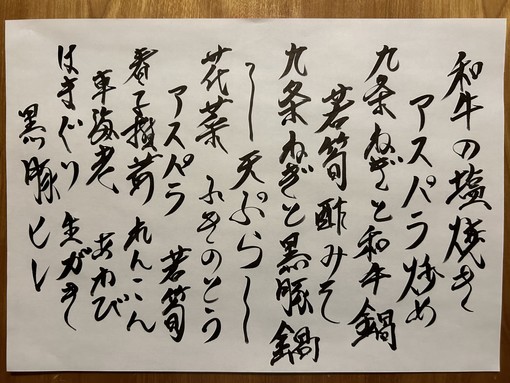 和牛の塩焼き
アスパラ炒め
九条ねぎと和牛鍋
若筍酢みそ
九条ねぎと黒豚鍋
〜〜天ぷら〜〜
花菜 ふきのとう
アスパラ 若筍
春子椎茸 れんこん
車海老 あわび
はまぐり 生がき
黒豚ヒレ